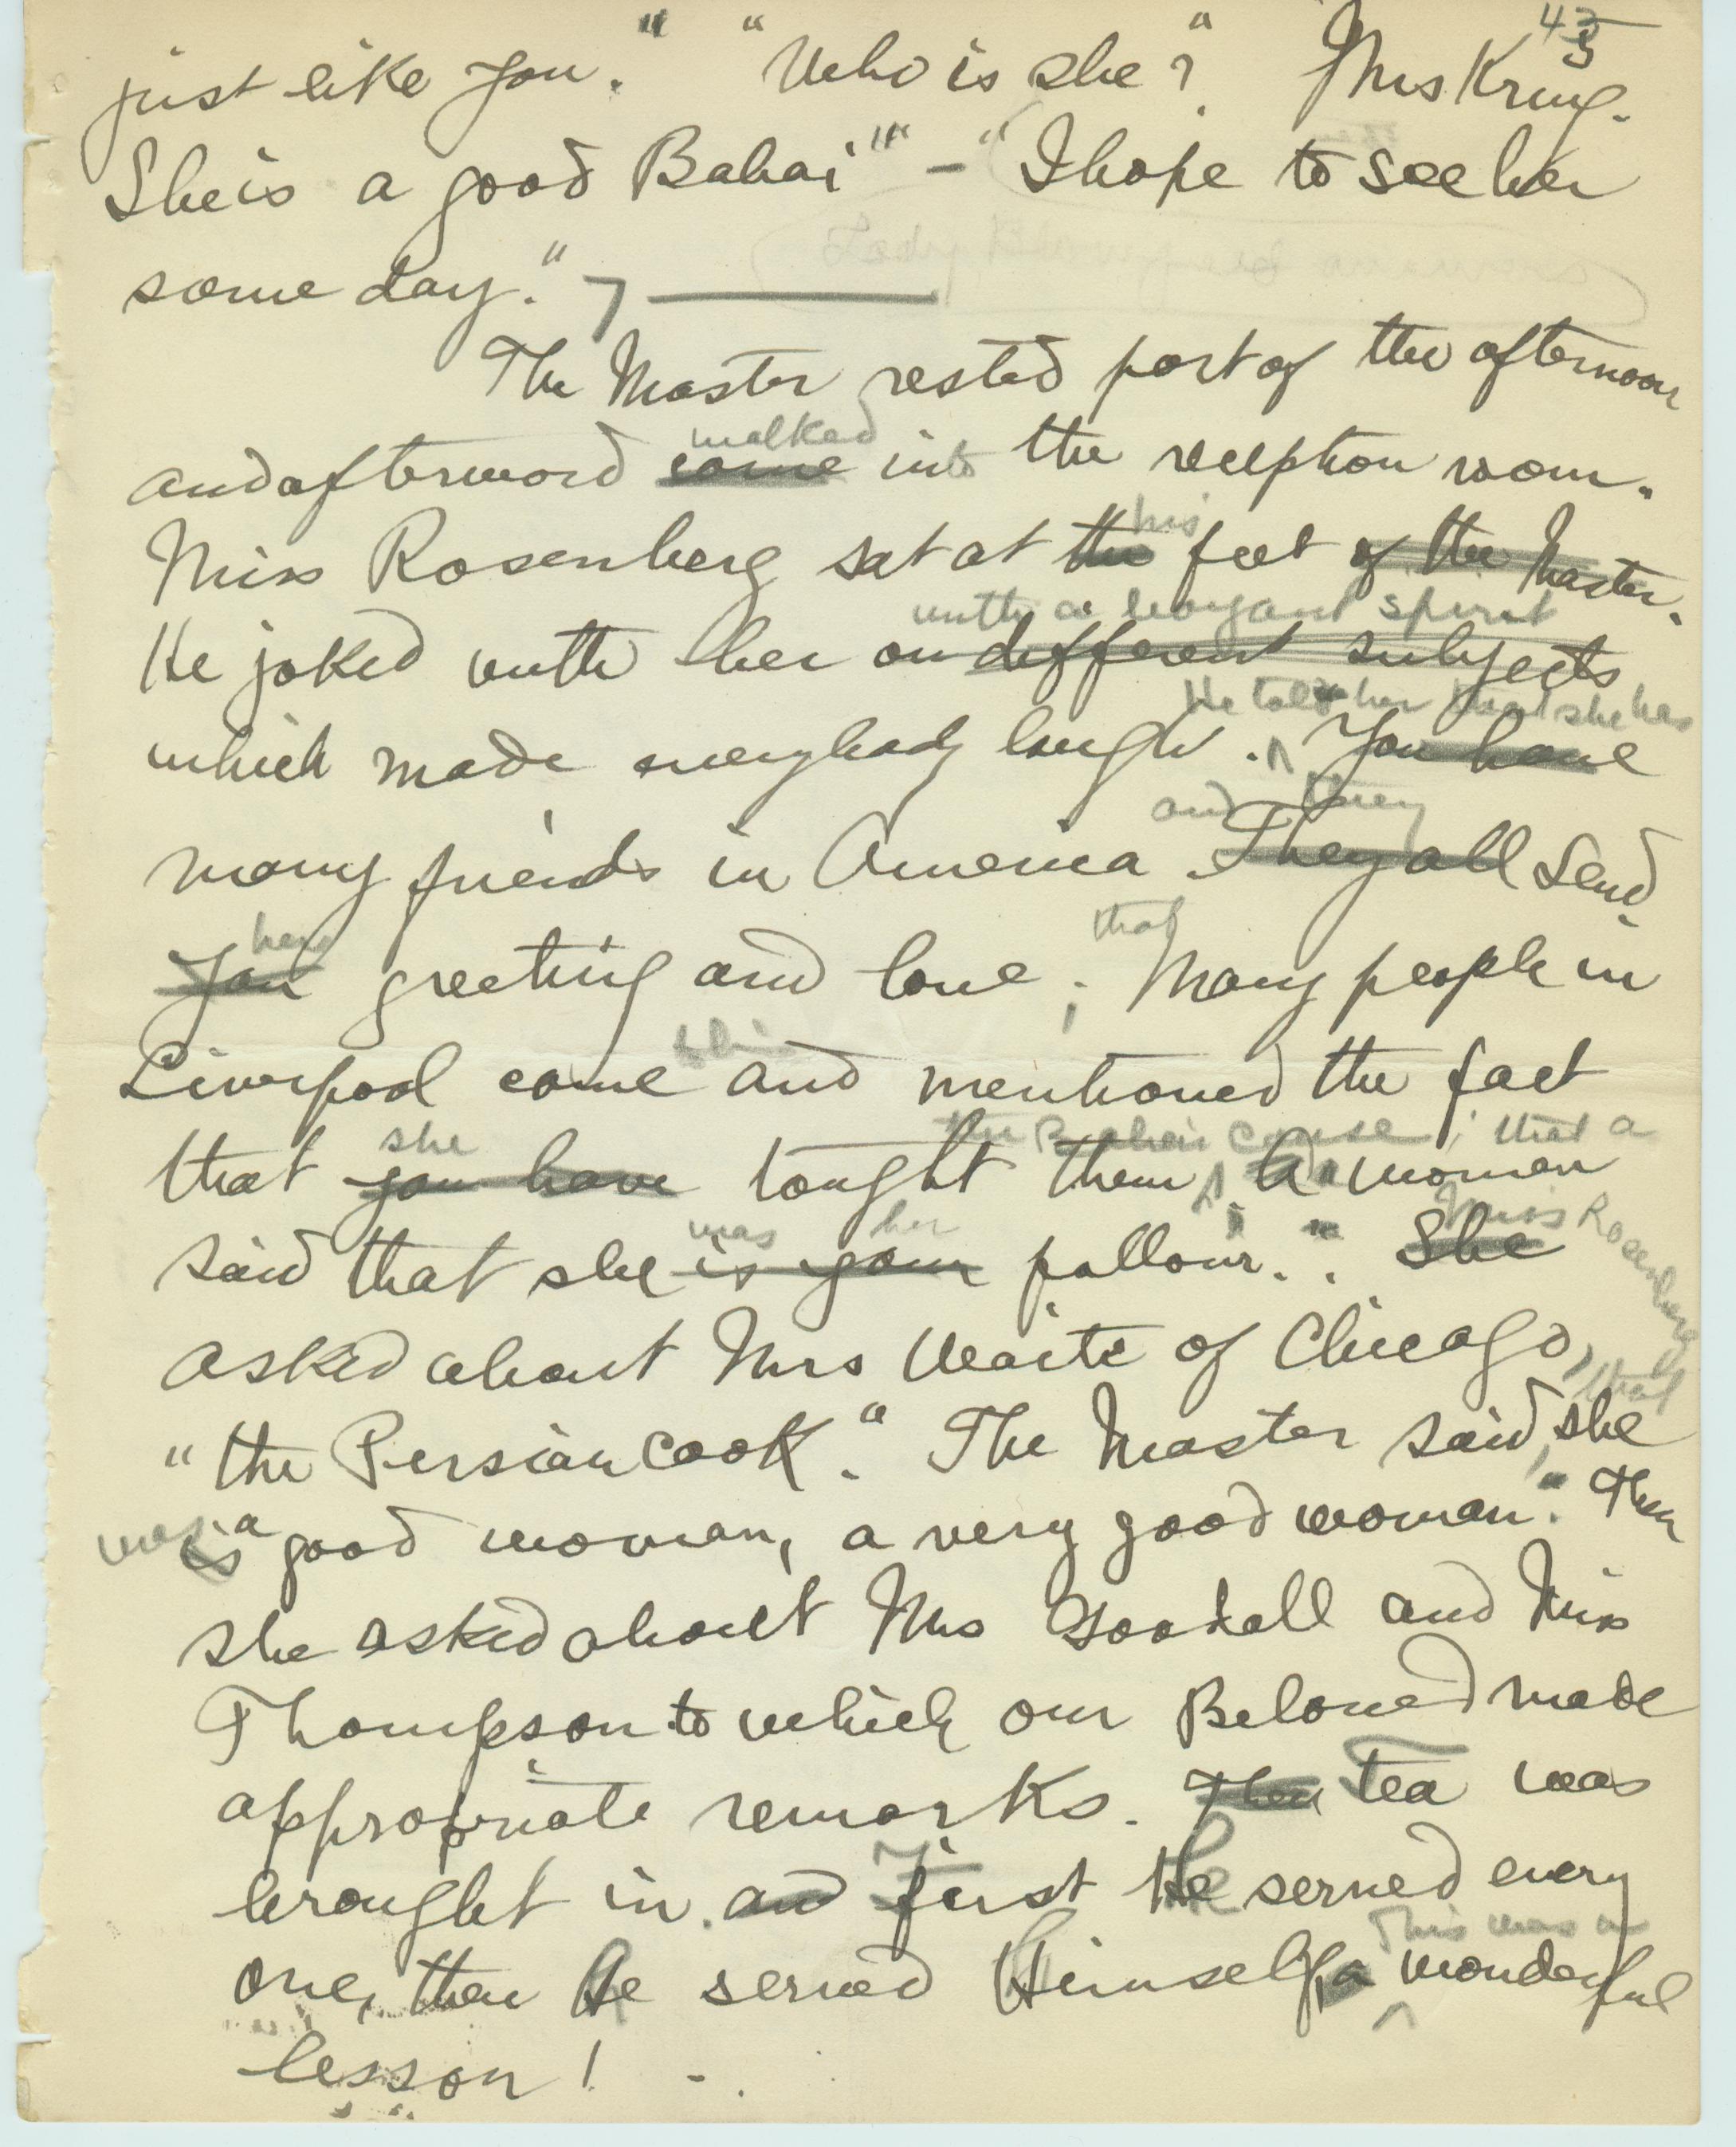 43
just like you." "Who is she?" Mrs Krug.
She is a good Bahai"" - "I hope to see her
some day."
The Master rested part of the afternoon
walked
and afterword came into the reception room.
his
Miss Rosenberg sat at the feet of the Master.
with a buoyant spirit
He joked with her on different subjects
He told her that she has
which made everybody laugh. You have
and they
many friends in America. They all send
her
You greeting and love; that Many people in
Liverpool came and mentioned the fact
she the Bahai Cause; that a
that you have tought them. A woman
was her Miss Rosenberg
said that she is your follower. She
asked about Mrs Waite of Chicago,
that
"the Persian cook." The Master said, she
was is a good woman, a very good woman." Then
she asked about Mrs Goodall and Miss
Thompson to which our Beloved made
appropriate remarks. Then tea was
brought in. and first He served every
This was a
one, then He served Himself, a wonderful
lesson!